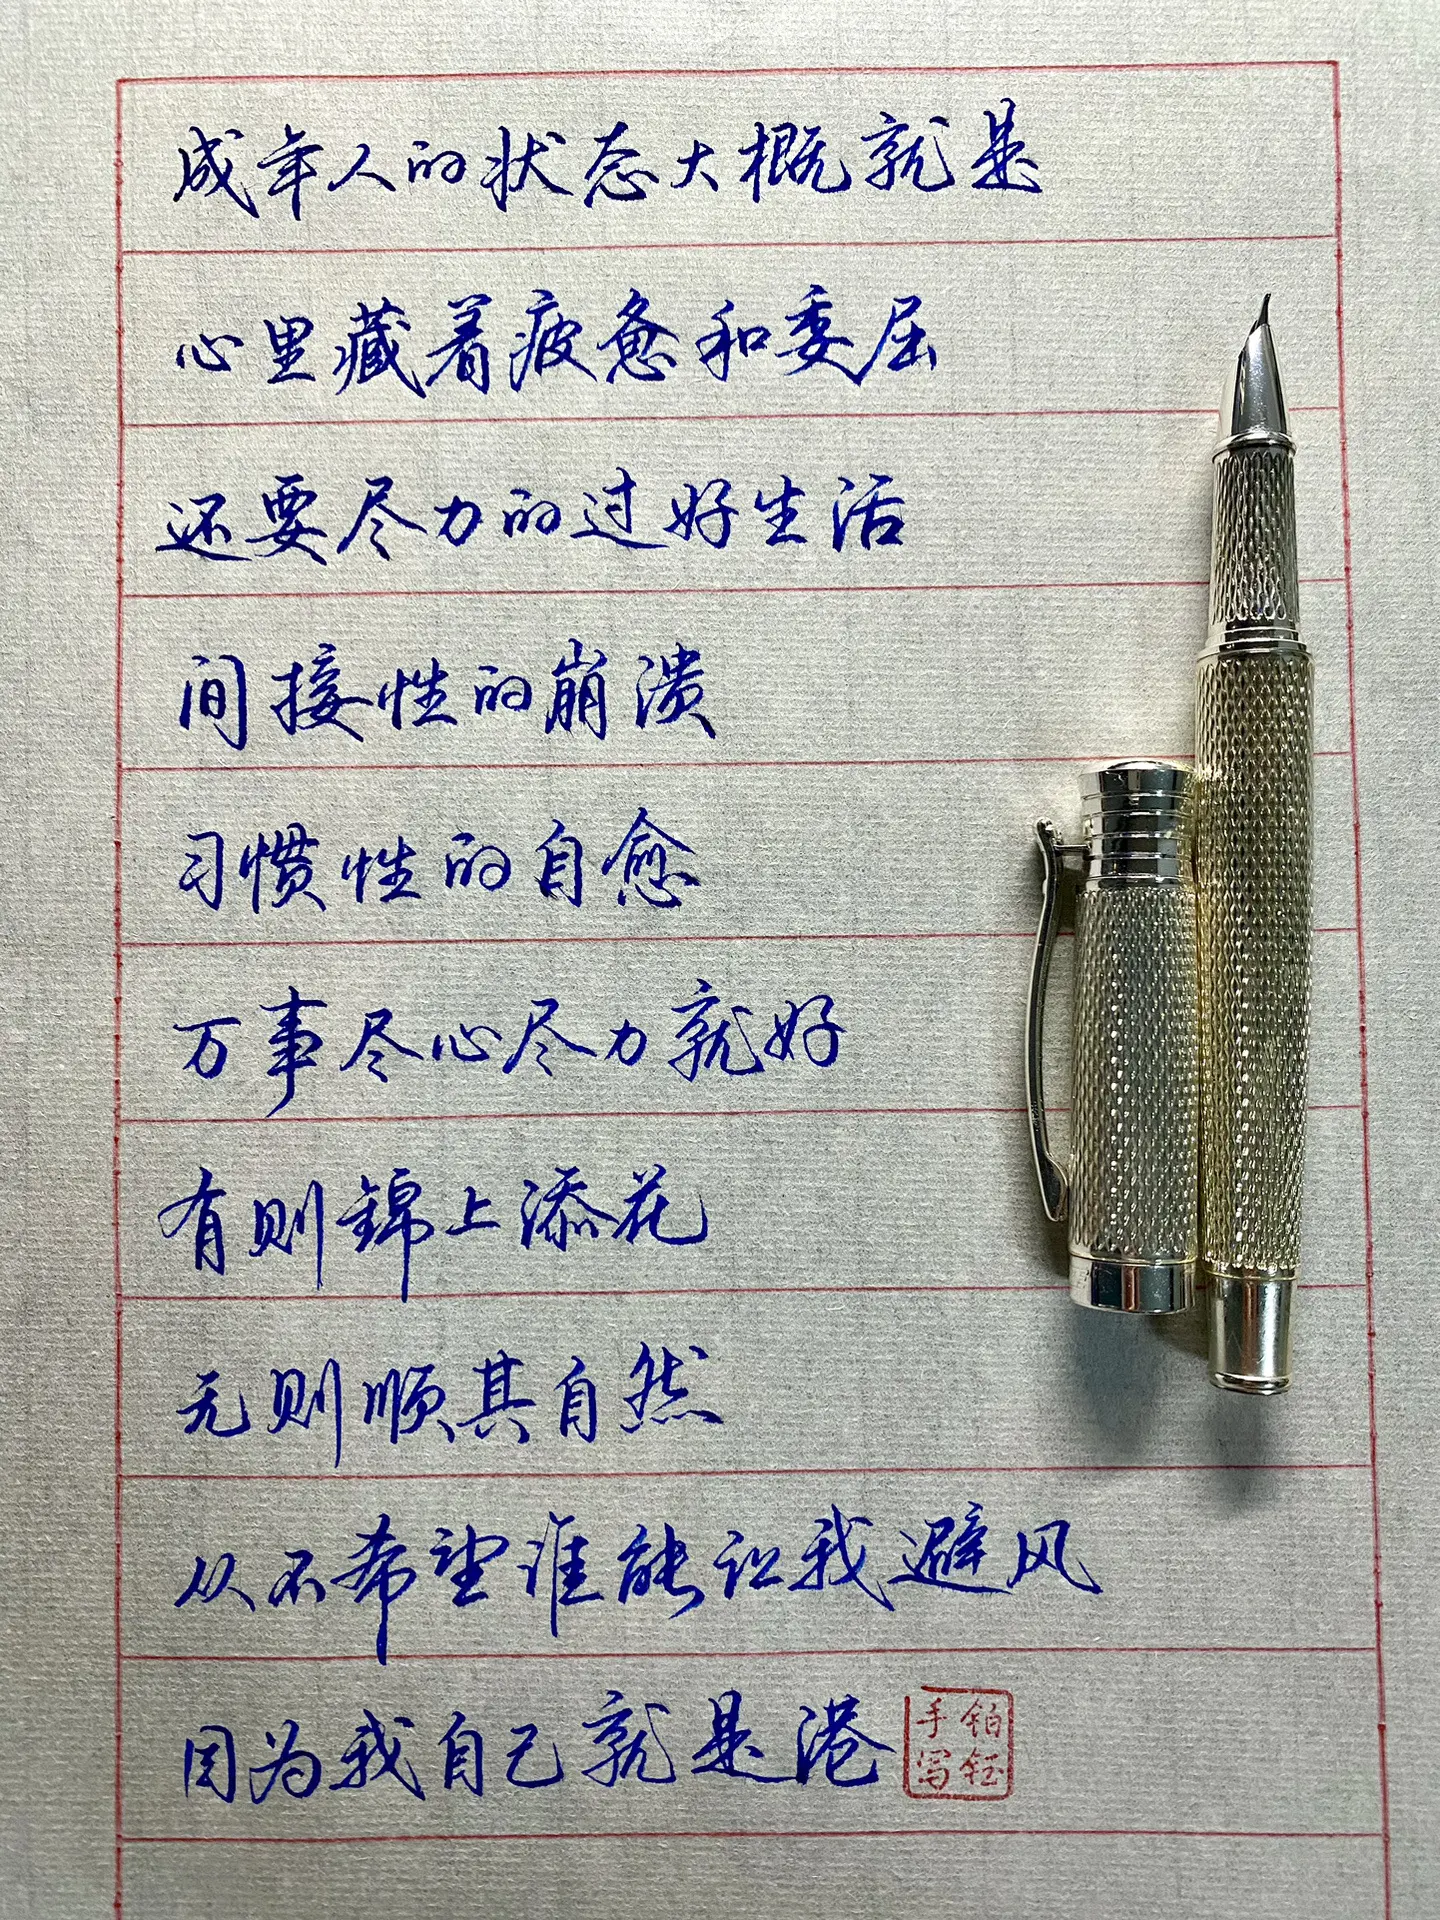 成年人的状态大概就是
心里藏着疲惫和委屈
还要尽力的过好生活
间接性的崩溃
习惯性的自愈
万事尽心尽力就好
有则锦上添花
无则顺其自然
从不希望谁能让我避风
因为我自己就是港
铂钰
手写